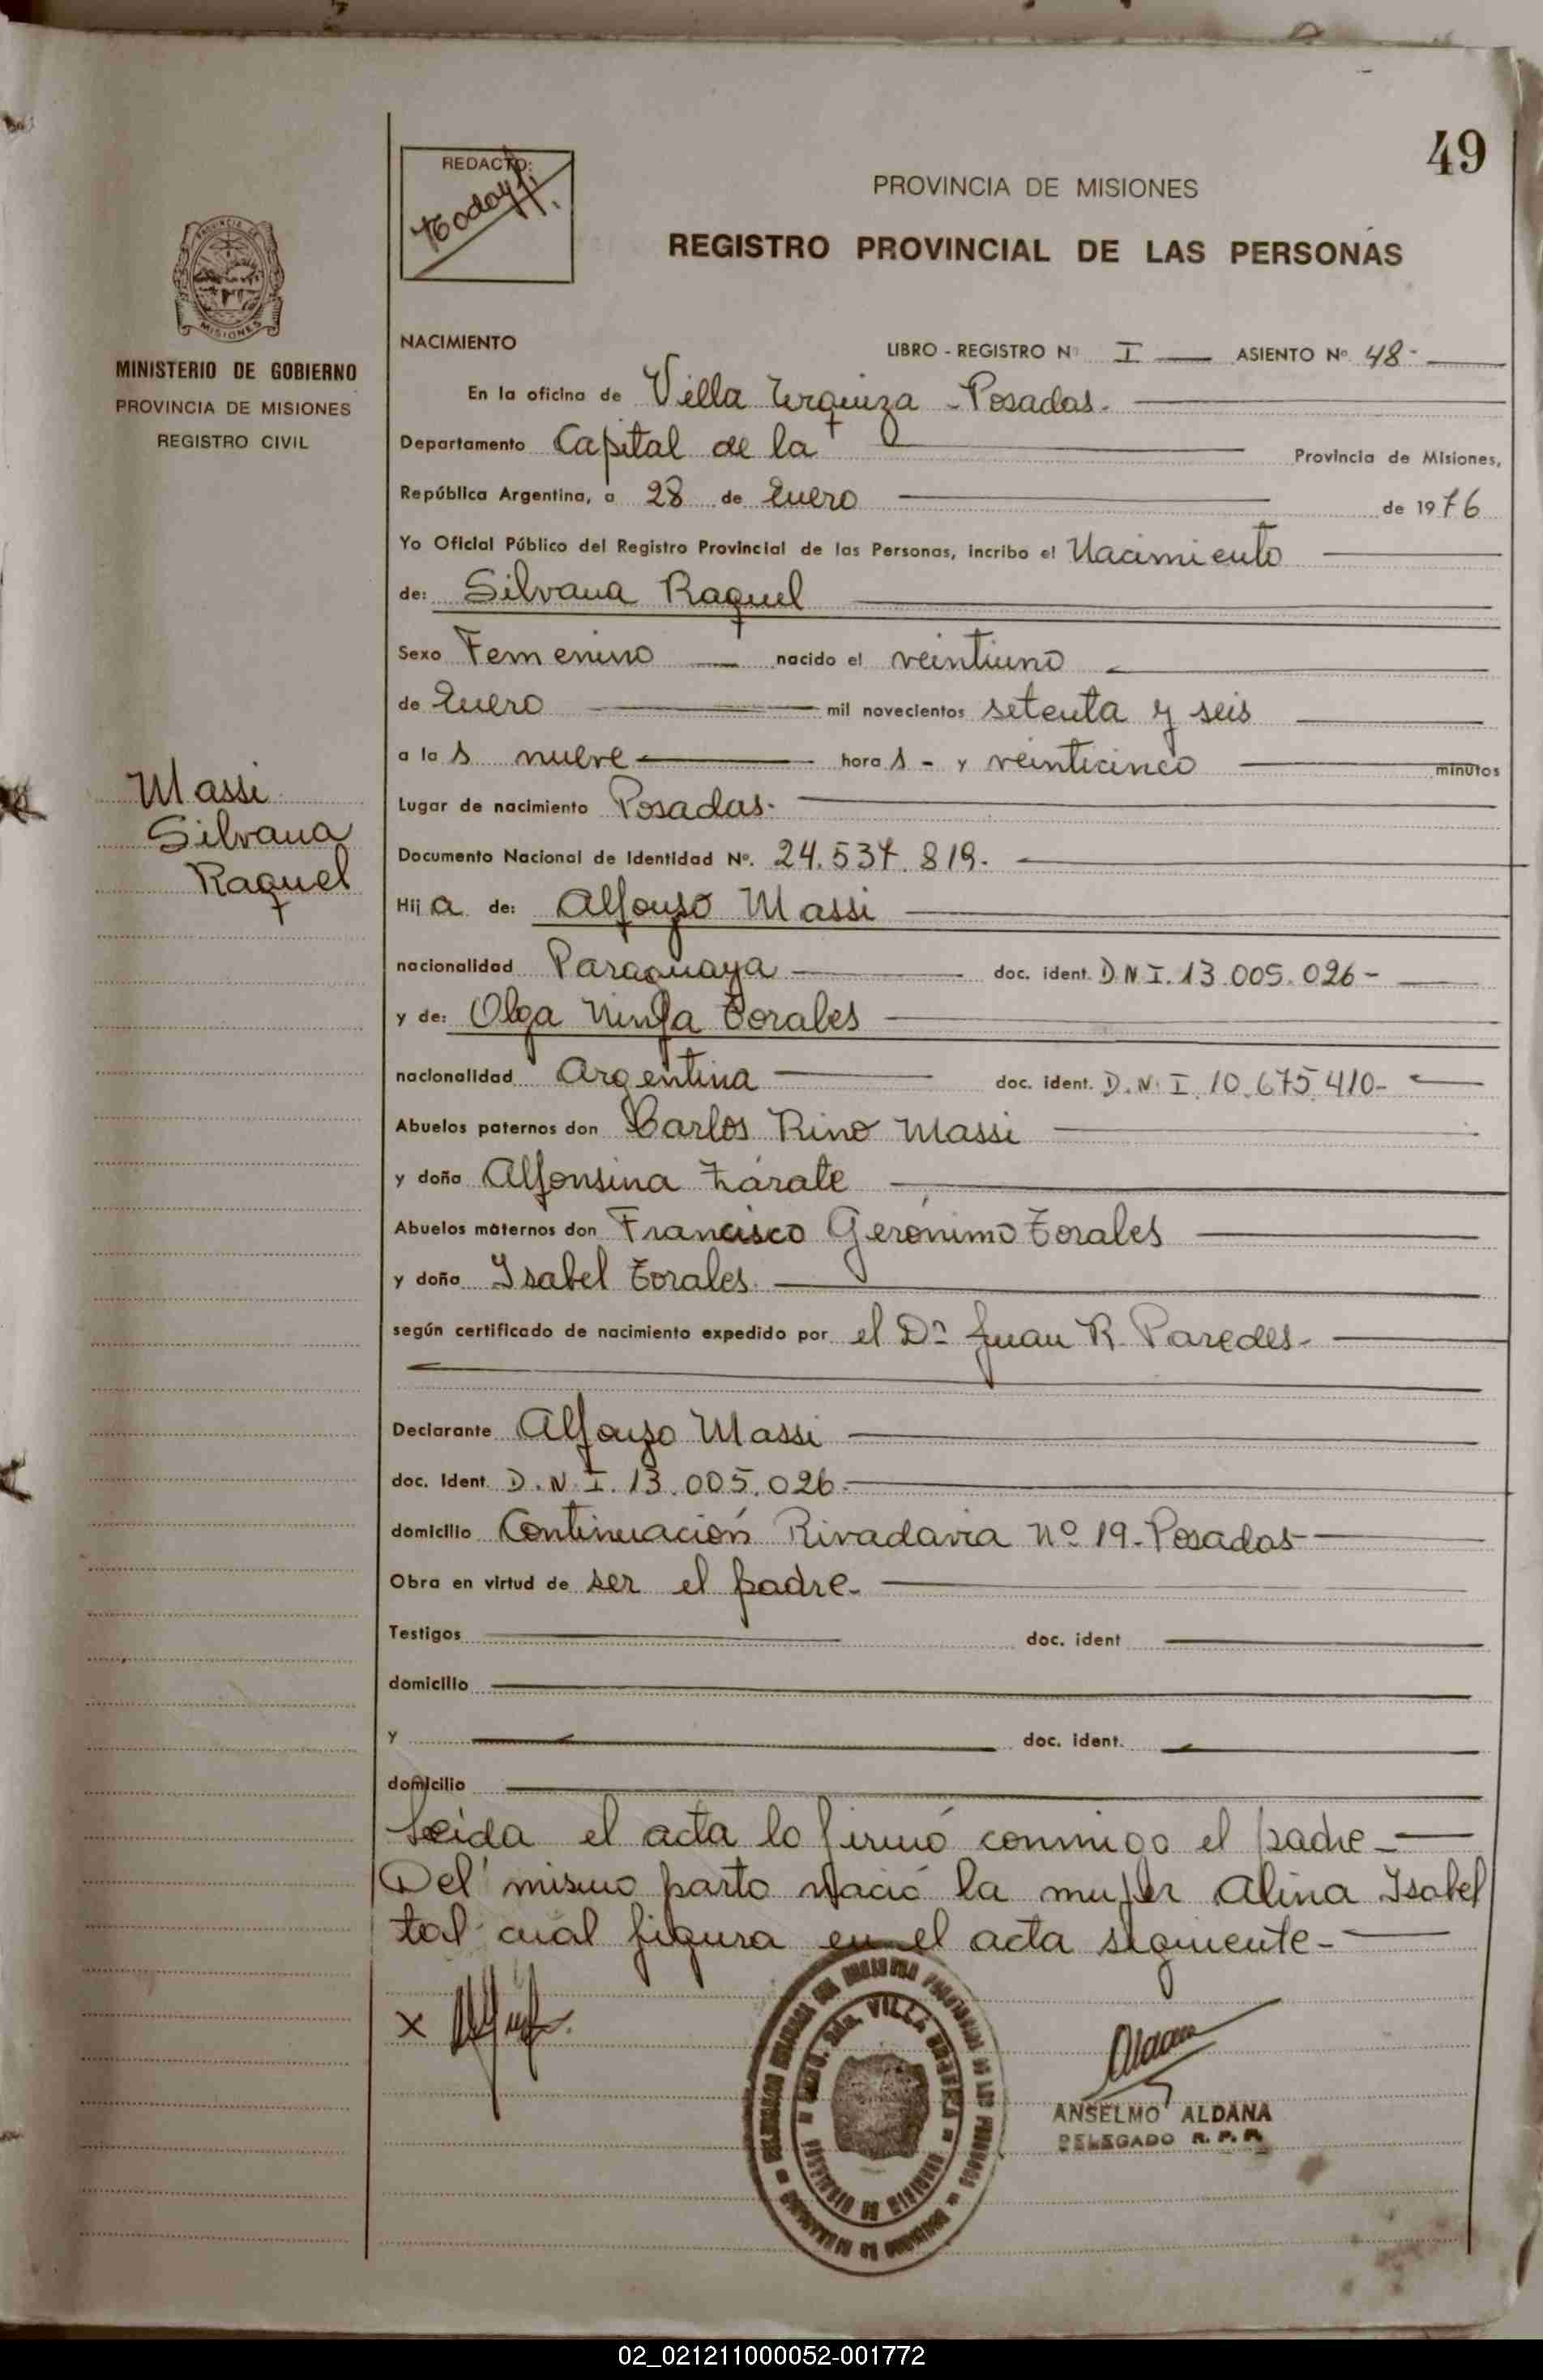 49
REDACTÓ:
PROVINCIA DE MISIONES
REGISTRO PROVINCIAL DE LAS PERSONAS
MISIONES
MINISTERIO DE GOBIERNO
PROVINCIA DE MISIONES
REGISTRO CIVIL
NACIMIENTO LIBRO - REGISTRO Nº I ASIENTO Nº 48-
En la oficina de Villa Urquiza - Posadas.
Departamento Capital de la Provincia de Misiones,
República Argentina, a 28 de Enero de 1976
Yo Oficial Público del Registro Provincial de las Personas, incribo el Nacimiento
de: Silvana Raquel
Sexo Femenino nacido el veintiuno
de Enero mil novecientos setenta y seis
a la s nueve hora s - y veinticinco minutos
Massi
Silvana
Raquel
Lugar de nacimiento Posadas.
Documento Nacional de Identidad Nº. 24.537.819.
Hij a de: Alfonso Massi
nacionalidad Paraguaya doc. ident. D.N.I. 13.005.026-
y de: Olga Ninfa Torales
nacionalidad Argentina doc. ident. D.N.I. 10.675.410-
Abuelos paternos don Carlos Rino Massi
y doña Alfonsina Zárate
Abuelos maternos don Francisco Gerónimo Torales
y doña Isabel Torales.
según certificado de nacimiento expedido por el Dr Juan R. Paredes-
Declarante Alfonso Massi
doc. Ident. D.N.I. 13.005.026.
domicilio Continuación Rivadavia nº 19-Posadas-
Obra en virtud de ser el padre.
Testigos doc. ident
domicilio
y doc. ident.
domicilio
Leida el acta lo firmó conmigo el padre-
Del mismo parto nació la mujer Alina Isabel
tal cual figura en el acta siguiente-
X
VILLA URQUIZA
ANSELMO ALDANA
DELEGADO R. P. P.
02_021211000052-001772